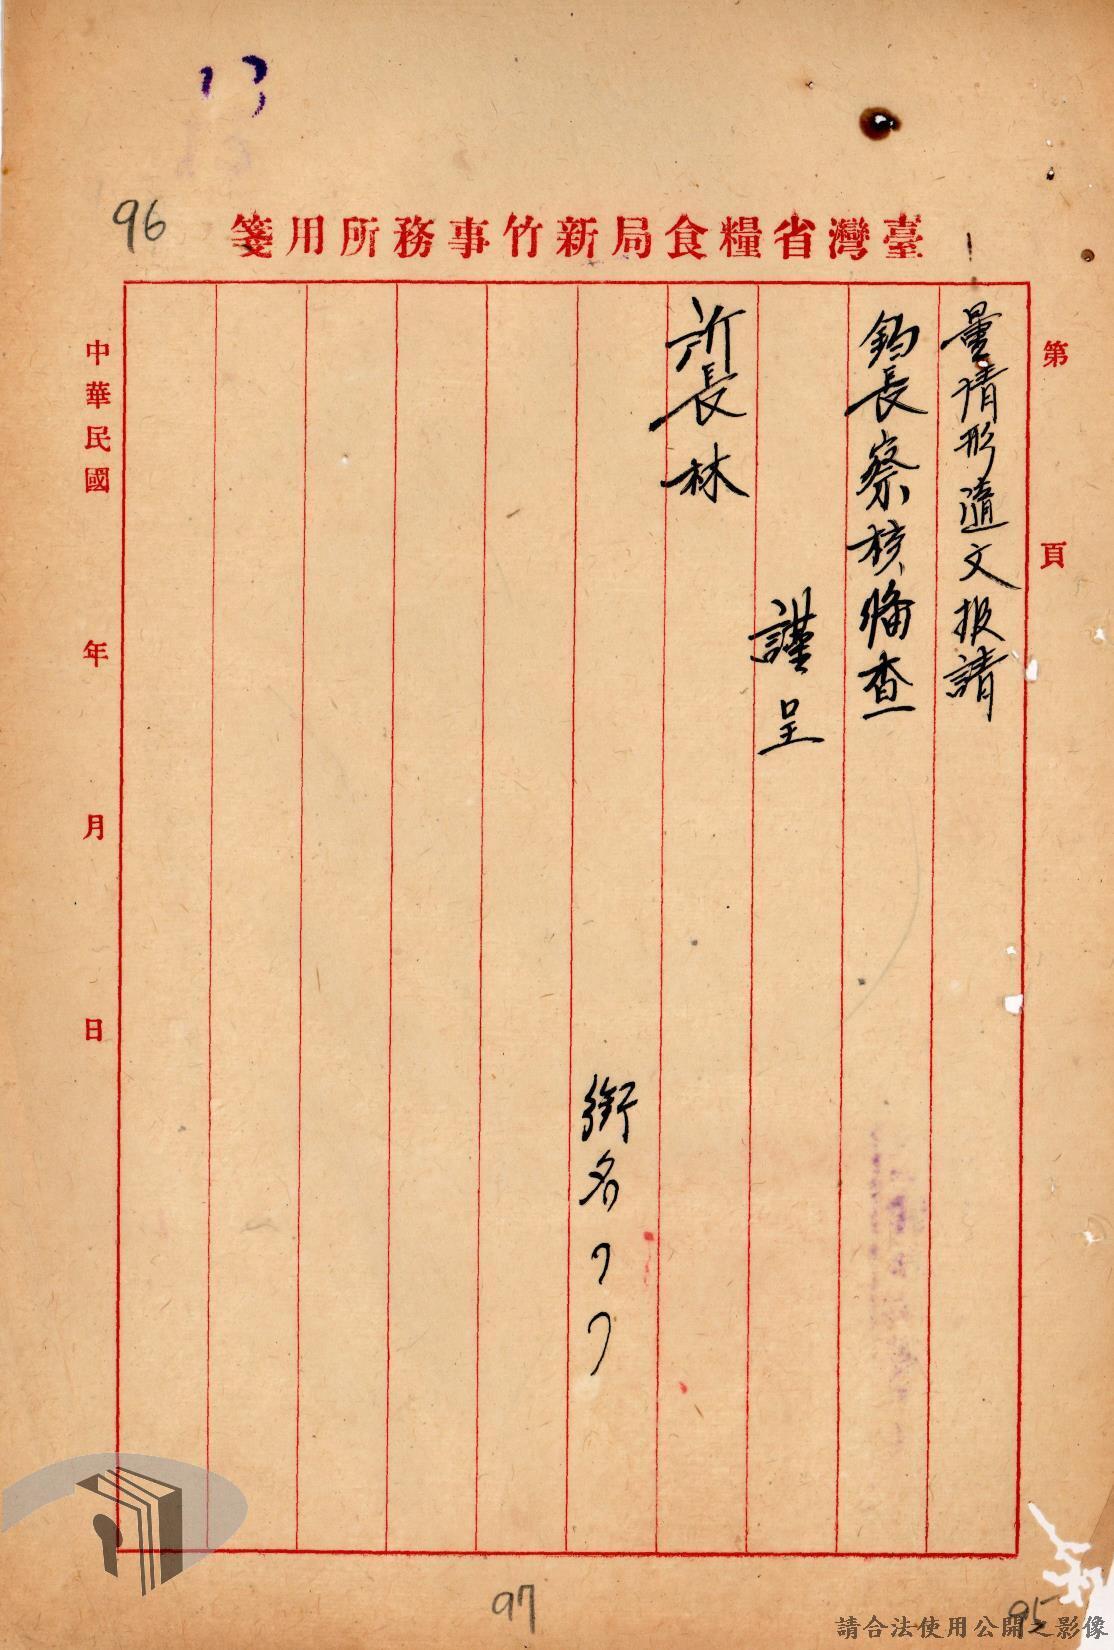 96
臺灣省糧食局新竹事務所用箋
第 頁
量情形隨文报請
鈞長察核備查
謹呈
所長林
銜名
中華民國 年 月 日
97
95
請合法使用公開之影像